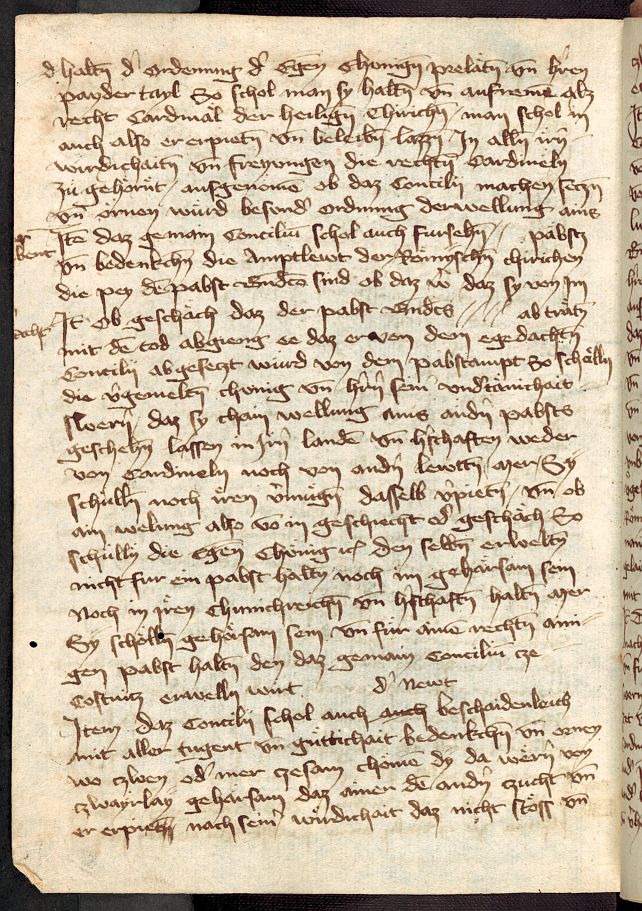 d halten d' Ordenung d' Egen chonigen prelaten vn h'ren
payder tayl So schol man sy halten vn aufneme alz
recht Cardinal der heiligen Chirichen man schol in
auch also er erpieten vn beleiben lazzen In allen irn
wirdichaiten vn freyungen die rechten Cardineln
zu gehornt aufgenome ob daz Concilii machen seczen
vn ornen wurd besund' Ordnung der wellung ains
Ite daz gemain Conciliu schol auch fursehen pabst
vn bedenkchen die Amptlewt der Romischen chirichen
die pey de pabst Bndcto sind ob daz w' daz sy von Im
It Ob geschach daz der pabst Bndcts ab traten
mit de tod abgieng ee daz er von dem egedachten
Concilii abgeseczt wurd von dem pabstampt So schollen
die v'gemelten chonig vn h'rn sein vndtanichait
swern daz sy chain wellung ains andn pabsts
geschehen lassen in Irn lande vn h'schaften weder
von Cardineln noch von andn lewten mer Sy
schullen noch iren v'mugen dasselb v'pieten vn ob
ain welung also vo in geschiecht od' geschach So
schullen die Egen Chonig den selben erwelten
nicht fur ein pabst halten noch im gehorsam sein
Noch in iren Chunichreichen vn h'schaften halten mer
Sy schollen gehorsam sein vn fur aine rechten aini
gen pabst halten den daz gemain Conciliu cze
Costnicz erwellen wirt d' Newt
Item daz Concilii schol auch auch beschaidenleich
mit aller tugent vn guttichait bedenkchen vn ornen
wo czwen od' mer czesam chome dy da wern von
czwayrlay gehorsam daz ainer de andn czucht vn
er erpieten nach seinr wirdichait daz nicht stoss vn